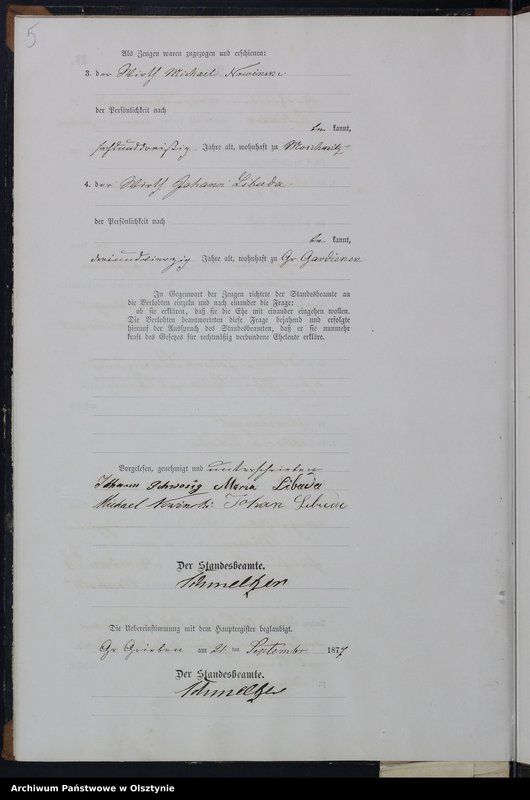 5
Als Zeugen waren zugezogen und erschienen:
3. der Wirth Michael Nowinski
der Persönlichkeit nach
be kannt,
sechsunddreißig Jahre alt, wohnhaft zu Moschnitz
4. der Wirth Johann Libuda
der Persönlichkeit nach
be kannt,
dreiundvierzig Jahre alt, wohnhaft zu Gr Gardienen
In Gegenwart der Zeugen richtete der Standesbeamte an
die Verlobten einzeln und nach einander die Frage:
ob sie erklären, daß sie die Ehe mit einander eingehen wollen.
Die Verlobten beantworteten diese Frage bejahend und erfolgte
hierauf der Ausspruch des Standesbeamten, daß er sie nunmehr
kraft des Gesetzes für rechtmäßig verbundene Eheleute erkläre.
Vorgelesen, genehmigt und unterschrieben
Johann Schwesig Maria Libuda
Michael Nowinski Johan Libuda
Der Standesbeamte.
Schmeltzer
Die Uebereinstimmung mit dem Hauptregister beglaubigt.
Gr Grieben am 21 ten September 1877
Der Standesbeamte.
Schmeltzer
Archiwum Państwowe w Olsztynie